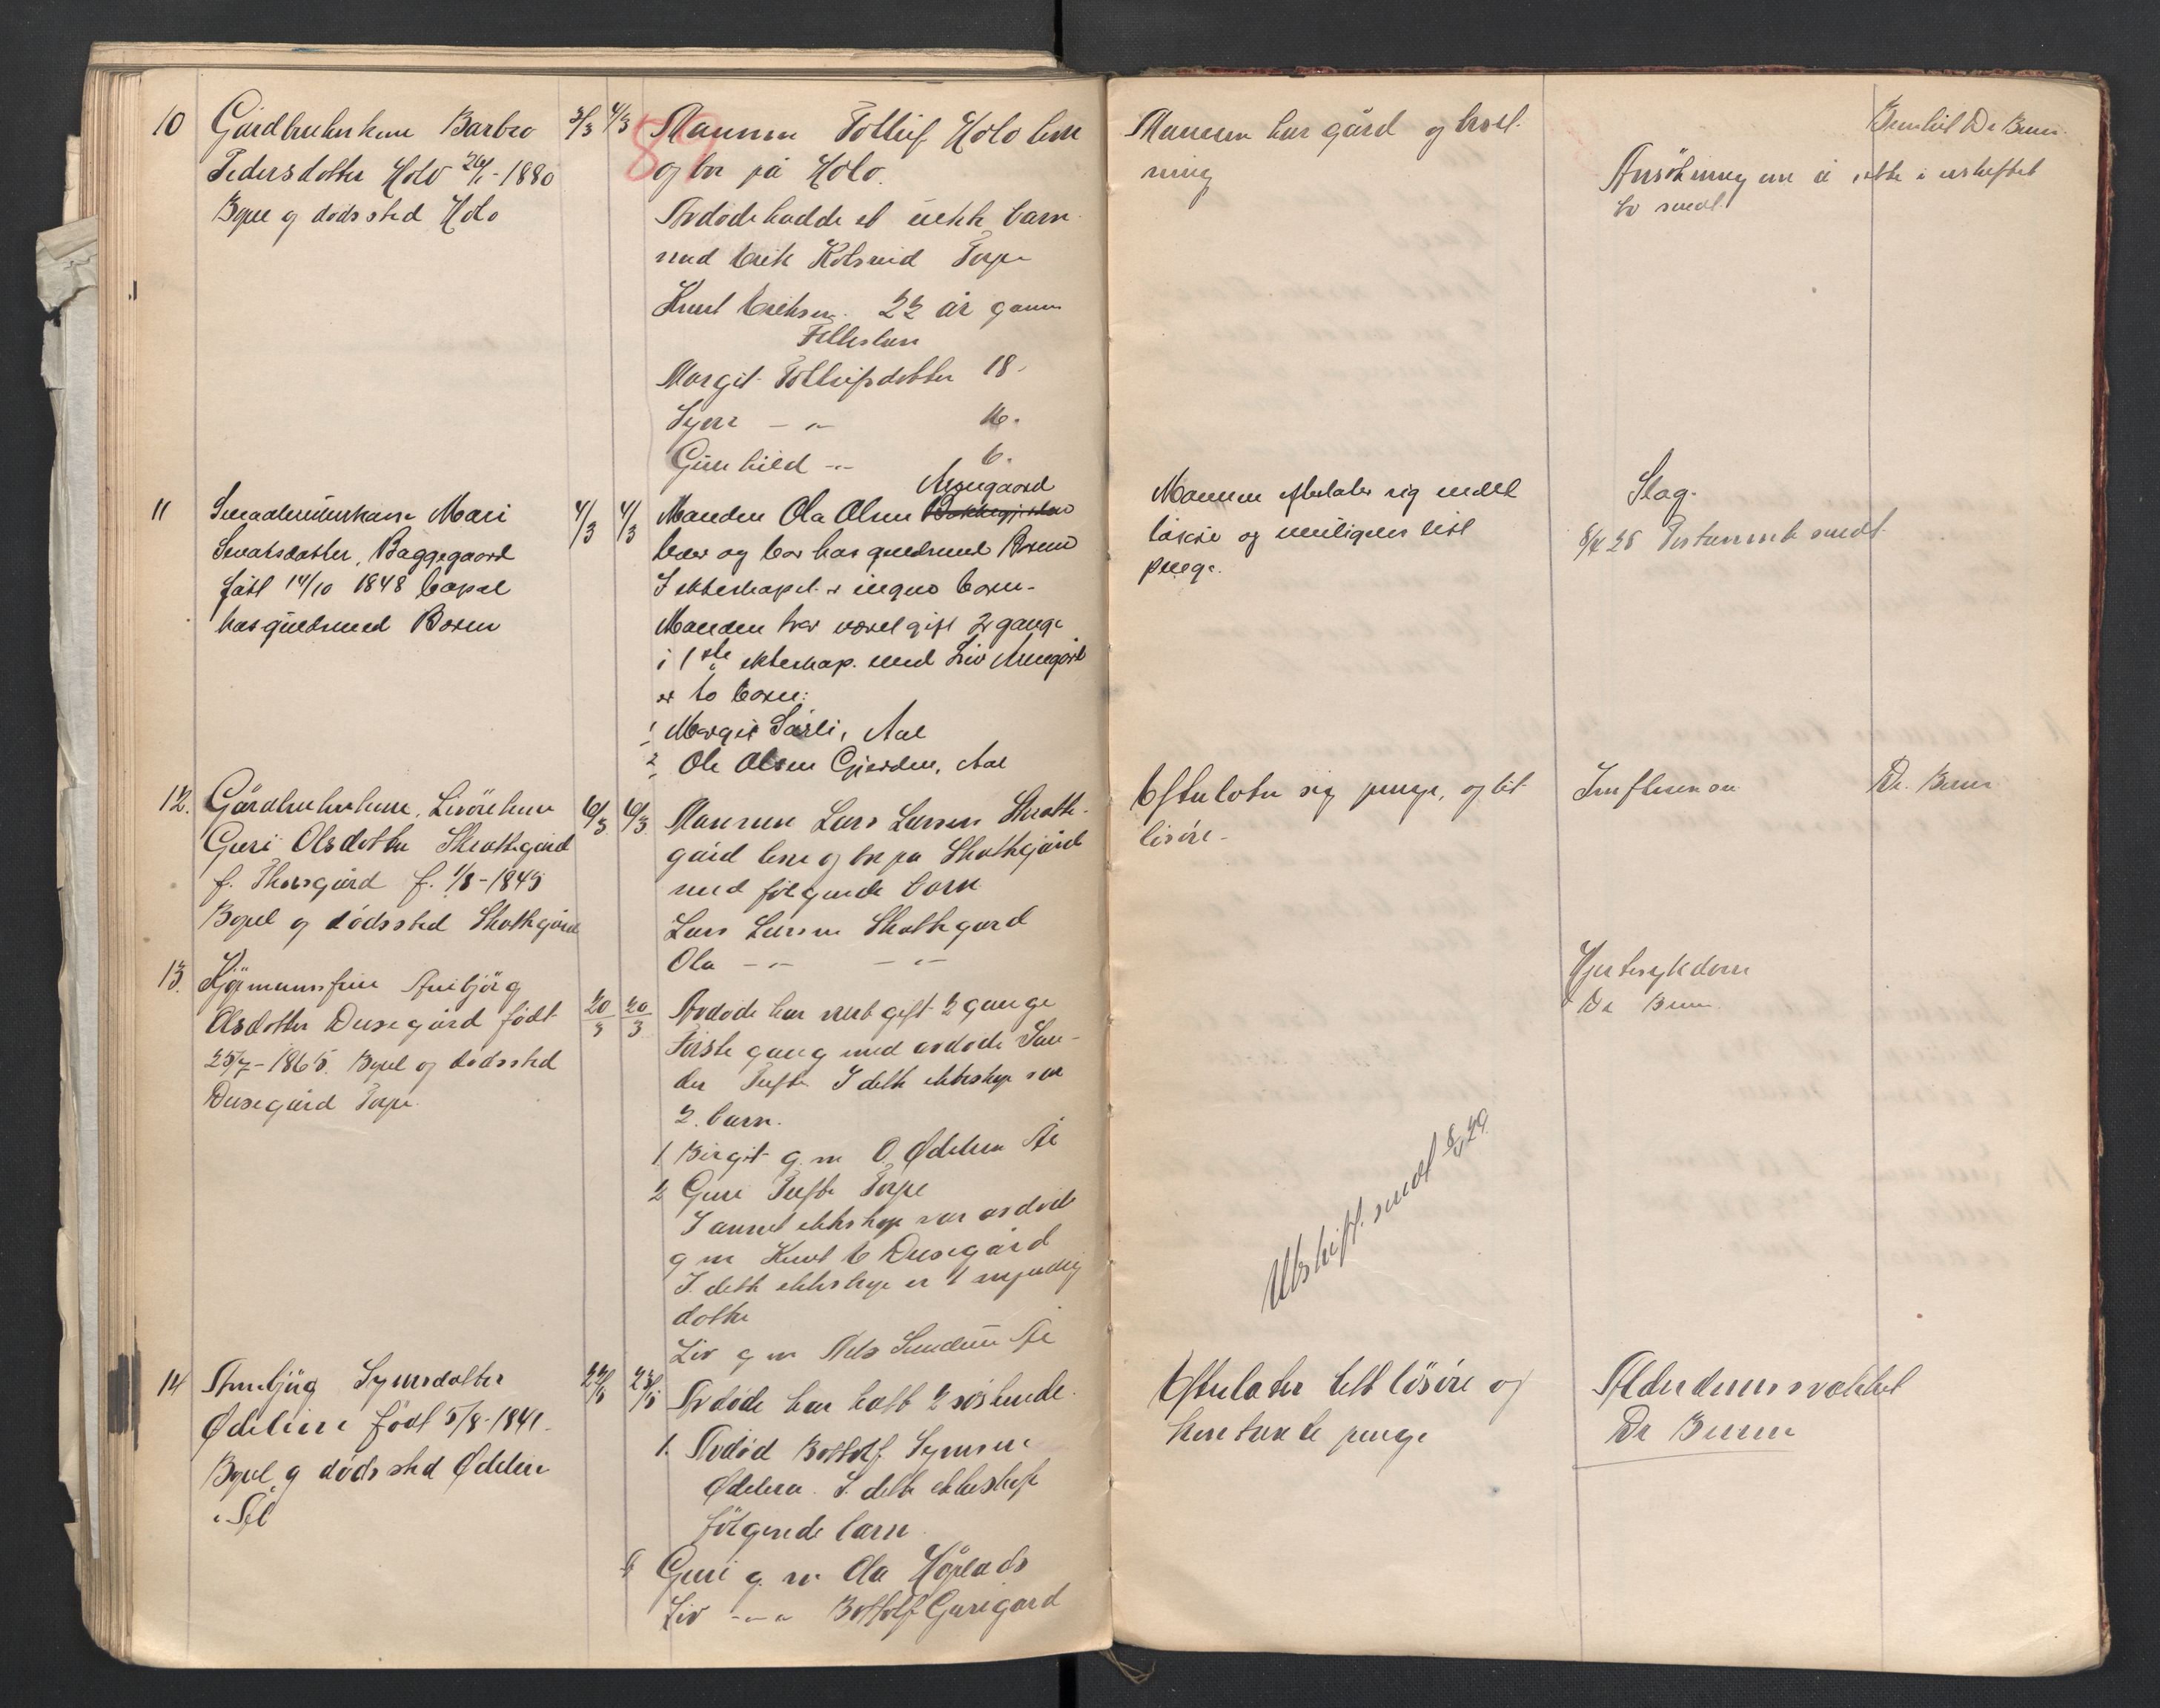 10 Gårdbrukerkone Barbro 3/3 4/3
Pedersdotter Holo 26/1-1880
Bopel og dødssted Holo
89
Mannen Tollef Holo lever
og bor på Holo.
Avdøde hadde et uekte barn
med Erik Kolsrud Torpe
Knut Eriksen. 22 år gammel
Fellesbarn
Margit Tollefsdotter 18.
Syver - " 16.
Gunhild - " 6.
Mannen har gård og besetning
Ansökning om å sitte i uskiftet
bo sendt.
Dr Bruun.
11 Mari
Baggegaard
født 14/10 1848 bopæl
hos guldsmed Boren
4/3 4/3
Arnegaard
Manden Ola Olsen
lever og bor hos guldsmed Boren
I ekteskapet er ingen barn.
Manden har været gift 2 gange
i 1ste ekteskap med Liv Arnegård
er to barn:
1 Margit Sørli, Aal
2 Ole Olsen Gjerden, Aal
Mannen efterlater sig endel
løsøre og muligens litt
penge.
Slag.
8/4 28 Testamente sendt
12. Gårdbrukerkone,
Guri Olsdotter Skottegård
f. 1/8-1845
Bopel og dødssted Skottegård
6/3 6/3
Mannen Lars Larsen Skottegård
lever og bor på Skottegård
med følgende barn
Lars Larsen Skottegard
Ola - " - "
Efterlater sig penge, og litt
løsøre.
Influensa
Dr. Bruun
13. Kjøpmannsfrue Anbjörg
Olsdotter Dusegård født
25/7-1865. Bopel og dødssted
Dusegård Torpe.
20/3 20/3
Avdøde har vært gift 2 gange
Første gang med avdøde Sander
Tufte I dette ekteskap var
2. barn.
1 Birgit g. m O. Ødelien Ål
2 Guri Tufte Torpe
I annet ekteskap var avdøde
g m Knut E Dusegård
I dette ekteskap er 1 myndig
dotter
Liv g m Nils Ål
Hjertesykdom
Dr Bruun.
Utskift. sendt 8/1 29.
14 Anbjörg Syversdotter
Ødelien født 5/8-1841.
Bopel og dødssted Ødelien
i Ål
22/5 23/5
Avdøde har hatt 2 søskende.
1. Avdød Bottolf Syversen
Ødelien. I dette ekteskap
følgende barn
Guri g. m Ola
Liv - " - Bottolf Gurigard
Efterlater litt løsøre og
kontante penge
Alderdomssvakhet
Dr Bruun